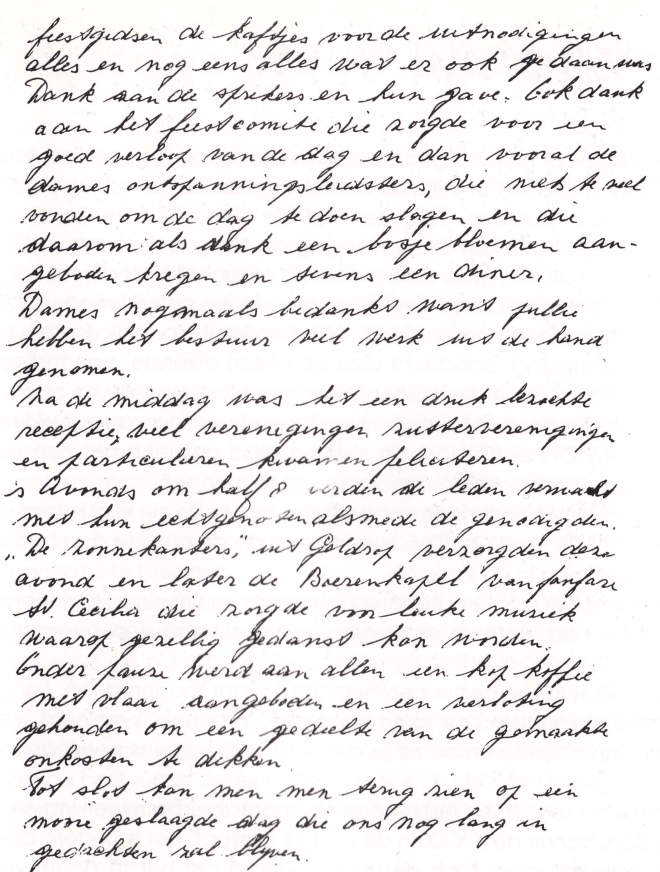 feestgidsen de kaftjes voor de uitnodigingen
alles en nog eens alles wat er ook gedaan was
Dank aan de sprekers en hun gave. Ook dank
aan het feestcomite die zorgde voor een
goed verloop van de dag en dan vooral de
dames ontspanningsleidsters, die niets te veel
vonden om de dag te doen slagen en die
daarom als dank een bosje bloemen aan-
geboden kregen en tevens een diner.
Dames nogmaals bedankt want jullie
hebben het bestuur veel werk uit de hand
genomen.
Na de middag was het een druk bezochte
receptie, veel verenegingen zusterverenigingen
en particulieren kwamen feliciteren.
's Avonds om half 8 werden de leden verwacht
met hun echtgenoten alsmede de genodigden.
"De Zonnekanters," uit Geldrop verzorgden deze
avond en later de Boerenkapel van fanfare
St. Cecilia die zorgde voor leuke muziek
waarop gezellig gedanst kon worden.
Onder pauze werd aan allen een kop koffie
met vlaai aangeboden en een verloting
gehouden om een gedeelte van de gemaakte
onkosten te dekken.
Tot slot kan men men terug zien op een
mooie geslaagde dag die ons nog lang in
gedachten zal blijven.